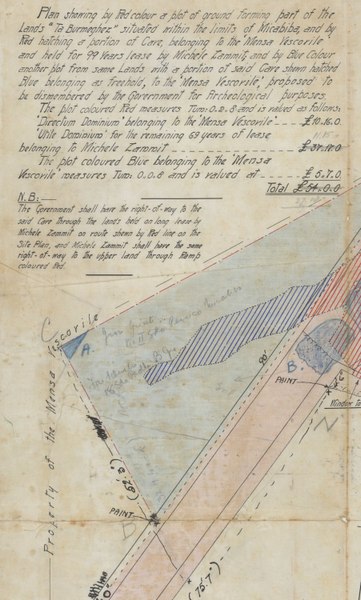 Plan showing by Red colour a plot of ground forming part of the
Lands "Ta Burmeghez" situated within the limits of Micabiba, and by
Red hatching a portion of Cave, belonging to the Mensa Vescovile
and held for 99 Years lease by Michele Zammit; and by Blue Colour
another plot from same Lands with a portion of said Cave shewn hatched
Blue belonging as Freehold, to the 'Mensa Vescovile,' proposed to
be dismembered by the Government for Archæological purposes.
The plot coloured Red measures Tum: 0.2.8 and is valued as follows:
'Directum Dominium' belonging to the Mensa Vescovile £ 10.16.0
'Utile Dominium' for the remaining 69 years of lease
belonging to Michele Zammit £ 37.17.0
The plot coloured Blue belonging to the 'Mensa
Vescovile' measures Tum: 0.0.8 and is valued at £ 5.7.0
Total £ 54.0.0
N.B:
The Government shall have the right-of-way to the
said Cave through the lands held on long lease by
Michele Zammit on route shewn by Red line on the
Site Plan, and Michele Zammit shall have the same
right-of-way to the upper land through Ramp
coloured Red.
Property of the Mensa Vescovile
C
A.
90'
B.
POINT
Window
N
POINT
B
(75'.7")